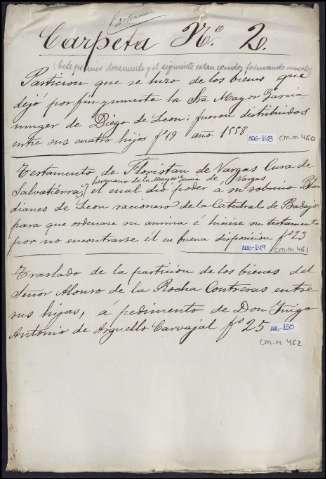 Carpeta N.º 2.
Este primer documento y el siguiente están cosidos formando
Partición que se hizo de los bienes que
dejó por fin y muerte la Sra Mayor García
muger de Diego de Leon: fueron distribuidos
entre sus cuatro hijos fº 19 año 1558
CM.M 460
Testamento de Floristan de Vargas Cura de
Salvatierra; el cual dió poder a su sobrino
dianes de Leon racionero de la Catedral de Badajoz
para que ordenase su anima é hiciese su testamento
por no encontrarse él en buena disposición fº 23
CM.M 461
Traslado de la particion de los bienes del
Señor Alonso de la Rocha Contreras entre
sus hijas, á pedimento de Don Iñigo
Antonio de Arguello Carvajal fº 25
CM.M 462